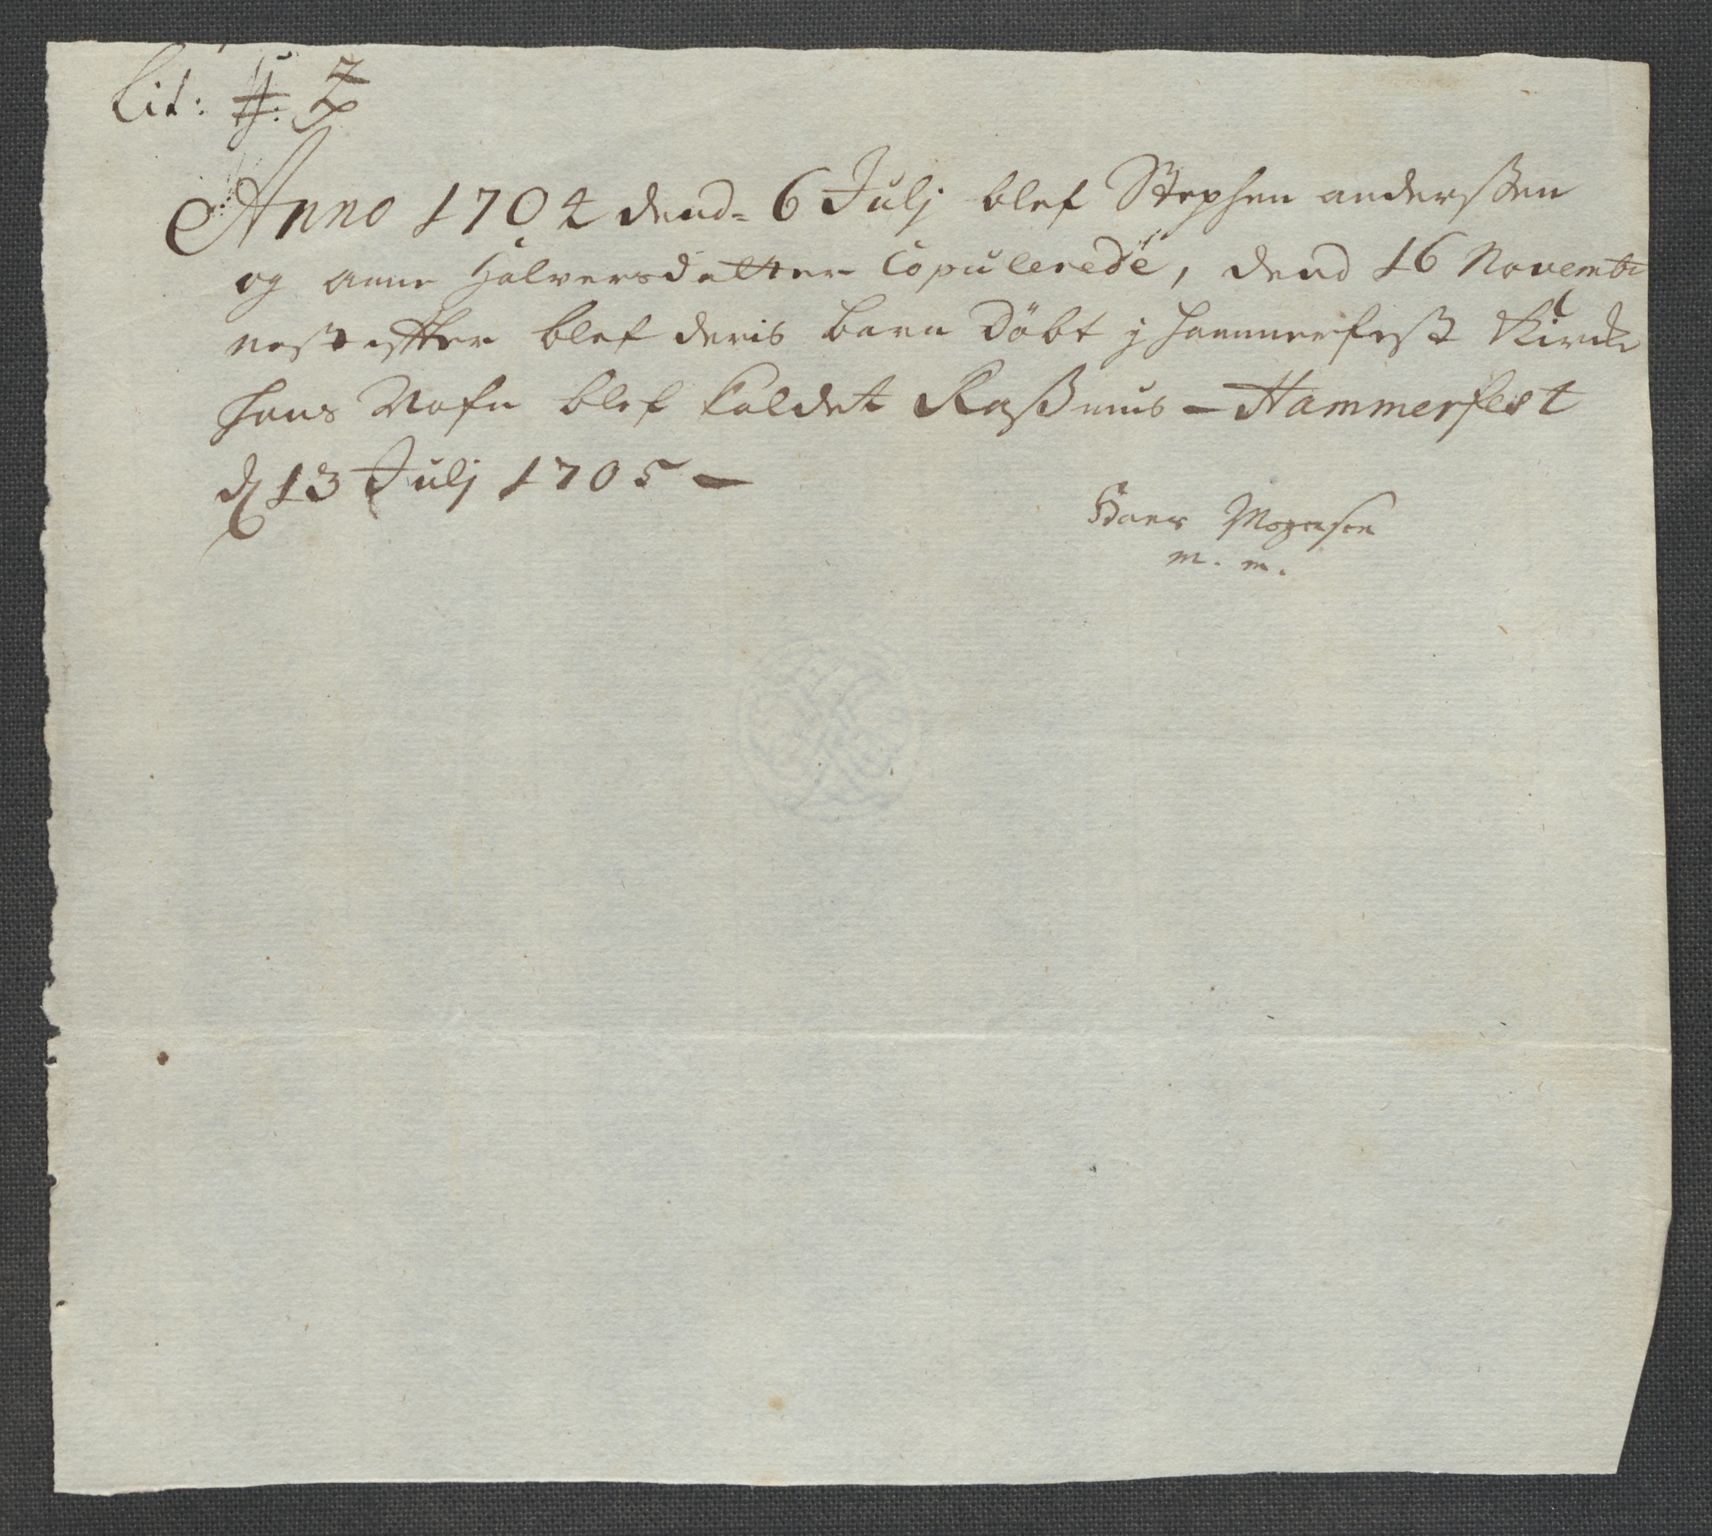 Lit:
Anno 1704 dend 6 Julj blef Stephen anderssen
og anne Halversdatter Copulerede, dend 16 Novembr
nest efter blef deris barn Döbt j Hammerfest Kircke
hans Nafn blef kaldet Rasmus - Hammerfest
d 13 Julj 1705 -
Hans Mogensen
m. m.